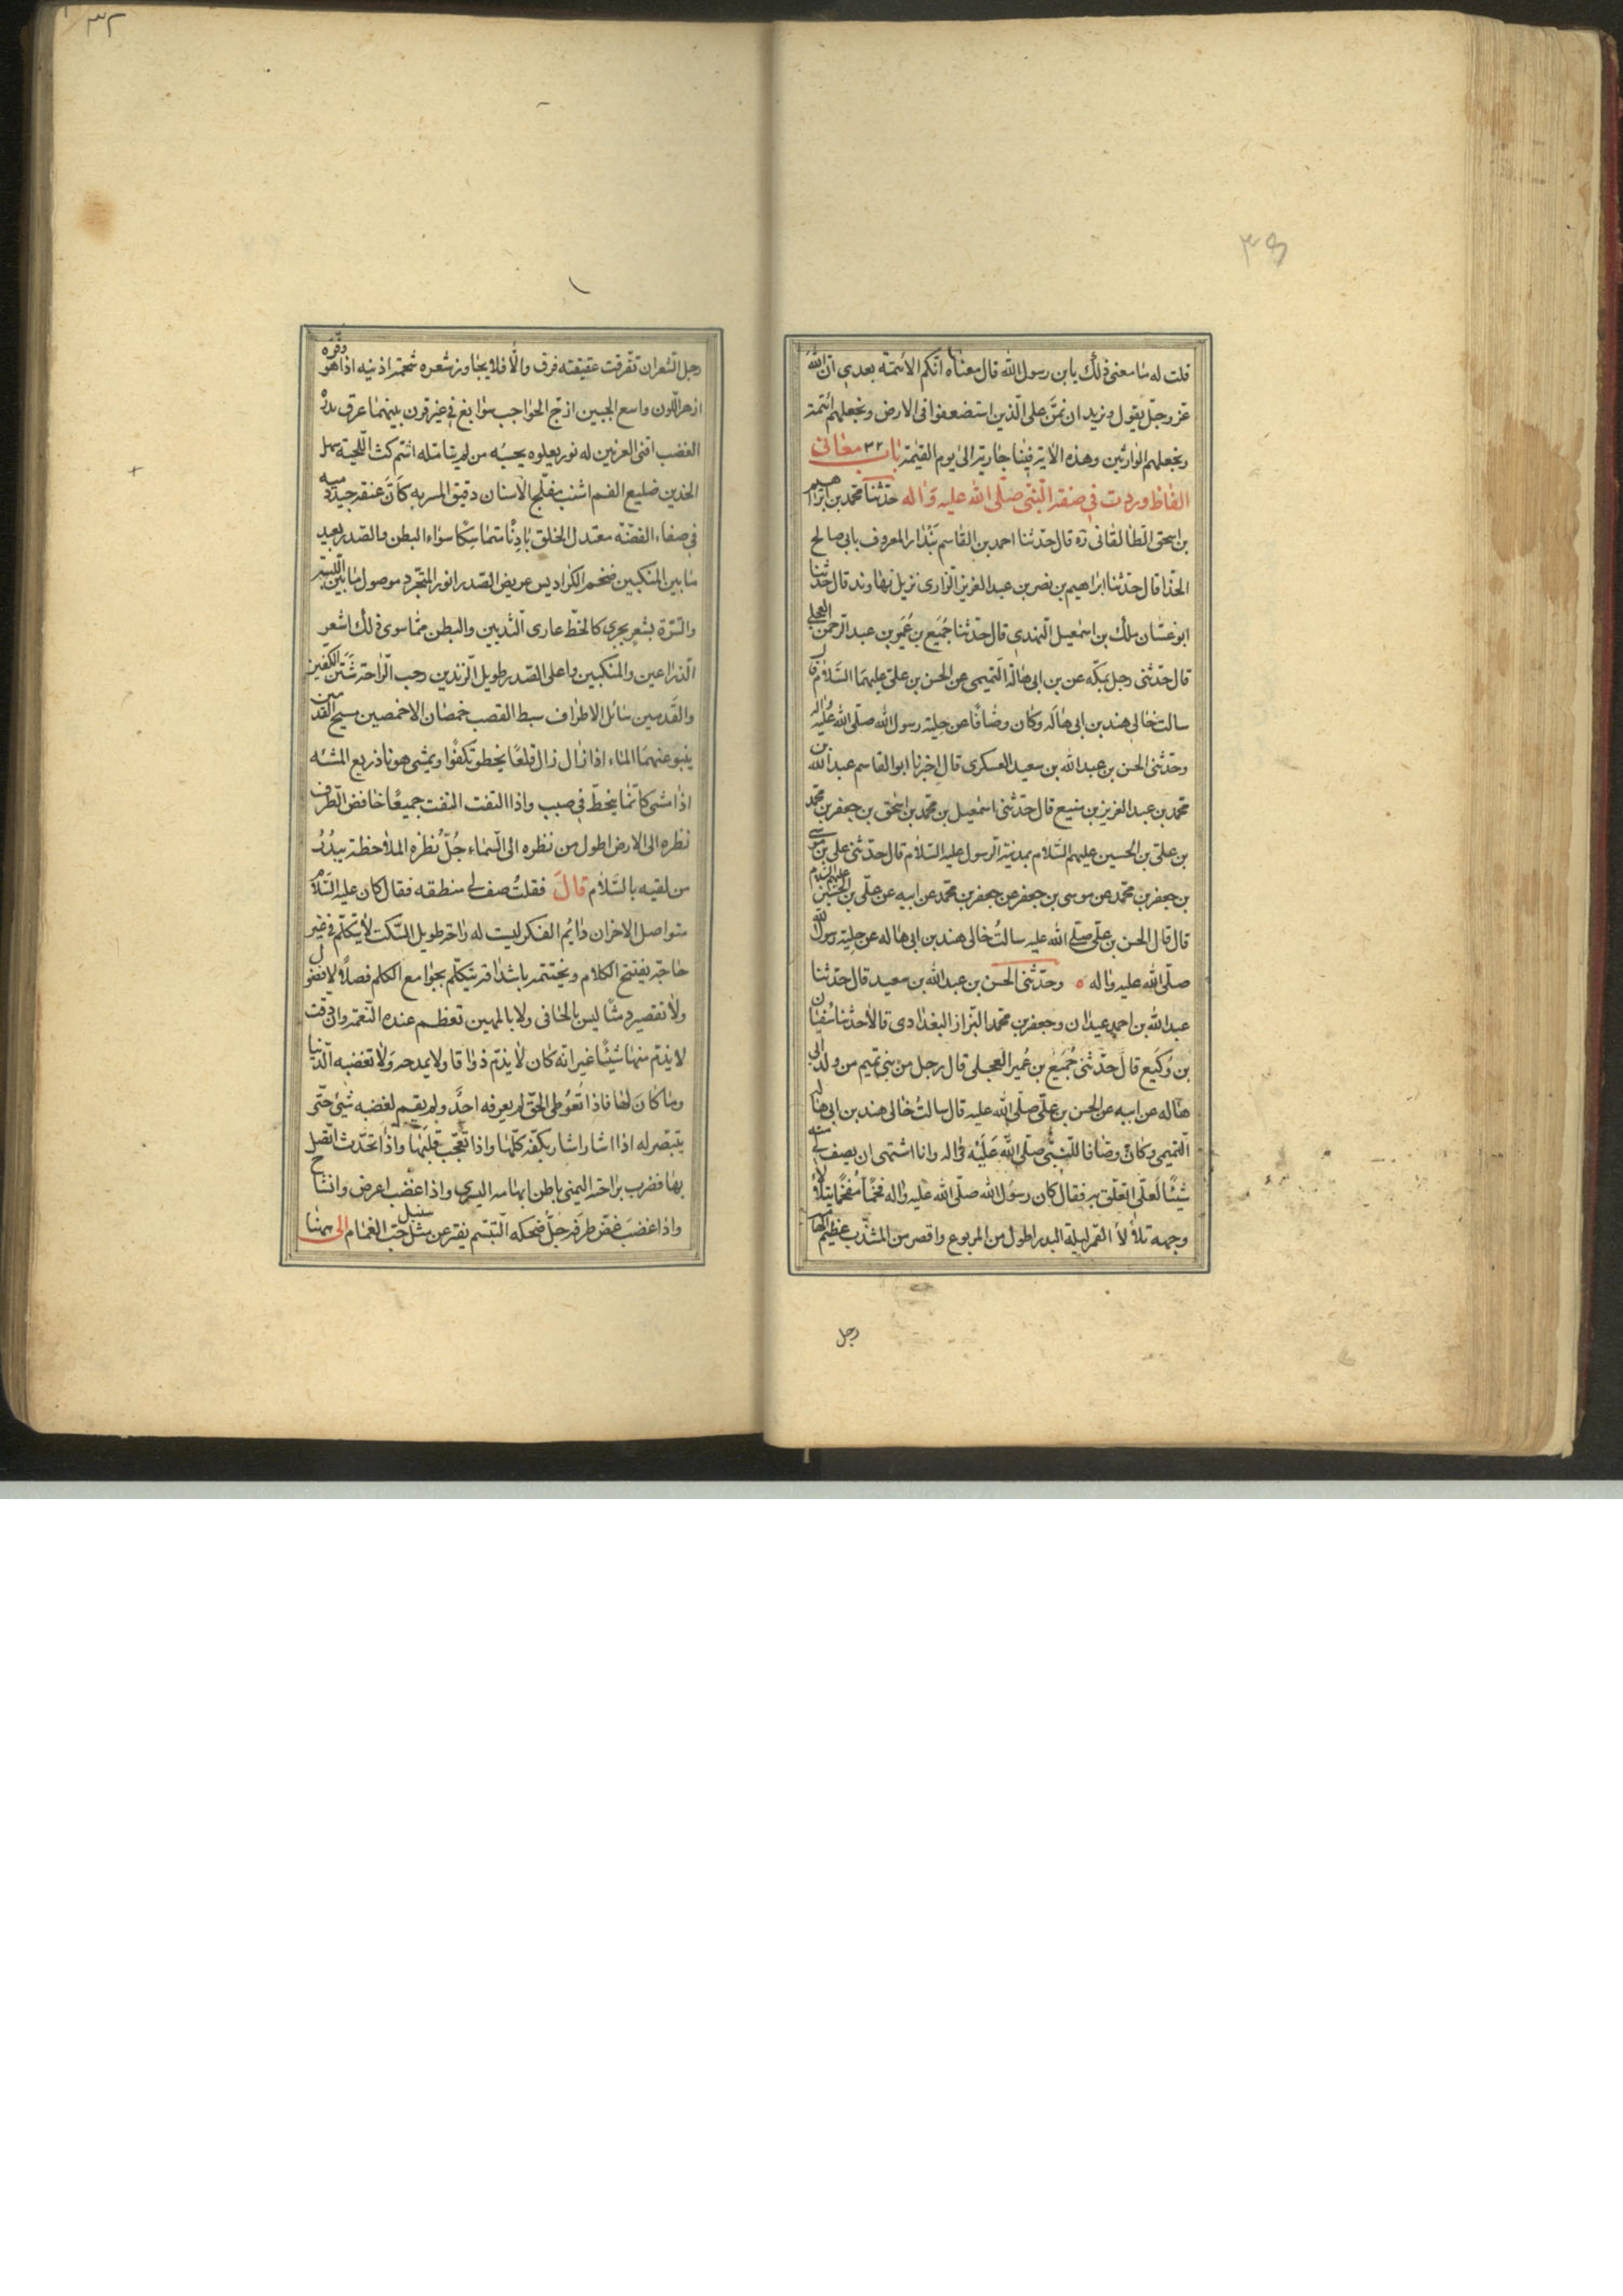 ٣٤
قلت له ما معنى ذلك يا بن رسول الله قال معناه انكم الائمة بعدي ان الله
عز وجل يقول ونريد ان نمن على الذين استضعفوا فى الارض ونجعلهم ائمة
ونجعلهم الوارثين وهذه الاية فينا جارية الى يوم القيمة باب ٣٢ معانى
الفاظ وردت في صفة النبى صلى الله عليه واله حدثنا محمد بن ابراهيم
بن اسحق الطالقانى ره قال حدثنا احمد بن القاسم بندار المعروف بابى صالح
الحذا قال حدثنا ابراهيم بن نصر بن عبد العزيز الرازى نزيل نهاوند قال حدثنا
ابو غسان ملك بن اسمعيل النهدي قال حدثنا جميع بن عمير بن عبد الرحمن العجلى
قال حدثنى رجل بمكه عن بن ابى هالة التميمى عن الحسن بن على عليهما السلام قال
سالت خالى هند بن ابى هاله وكان وصافا عن حلية رسول الله صلى الله عليه واله
وحدثنى الحسن بن عبد الله بن سعيد العسكرى قال اخبرنا ابو القاسم عبد الله بن
محمد بن عبد العزيز بن منيع قال حدثنى اسمعيل بن محمد بن اسحق بن جعفر بن محمد
بن على بن الحسين عليهم السلام بمدينة الرسول عليه السلام قال حدثنى على بن موسى
بن جعفر بن محمد عن موسى بن جعفر عن جعفر بن محمد عن ابيه عن على بن الحسين عليهم السلام
قال قال الحسن بن على صلى الله عليه سالت خالى هند بن ابى هاله عن حلية رسول الله
صلى الله عليه واله ه وحدثنى الحسن بن عبد الله بن سعيد قال حدثنا
عبد الله بن احمد عبدان وجعفر بن محمد البزاز البغدادى قالا حدثنا سفيان
بن وكيع قال حدثنى جميع بن عمير العجلى قال رجل من بنى تميم من ولد ابى
هاله عن ابيه عن الحسن بن على صلى الله عليه قال سالت خالى هند بن ابى هاله
التميمى وكان وصافا للنبى صلى الله عليه واله وانا اشتهى ان يصف لى منه
شيئا لعلى اتعلق به فقال كان رسول الله صلى الله عليه واله فخما مفخما يتلألأ
وجهه تلألأ القمر ليلة البدر اطول من المربوع واقصر من المشذب عظيم الهامة
رجل
٣٢
رجل الشعر ان تفرقت عقيقته فرق والا فلا يجاوز شعره شحمة اذنيه اذا هو وفره
ازهر اللون واسع الجبين ازج الحواجب سوابغ في غير قرن بينهما عرق يدره
الغضب اقنى العرنين له نور يعلوه يحسبه من لم يتامله اشم كث اللحية سهل
الخدين ضليع الفم اشنب مفلج الاسنان دقيق المسربه كأن عنقه جيد دميه
في صفاء الفضة معتدل الخلق بادنا متماسكا سواء البطن والصدر بعيد
ما بين المنكبين ضخم الكراديس عريض الصدر انور المتجرد موصول ما بين اللبة
والسرة بشعر يجري كالخط عارى الثديين والبطن مما سوى ذلك اشعر
الذراعين والمنكبين واعلى الصدر طويل الزندين رحب الراحة شثن الكفين
والقدمين سائل الاطراف سبط القصب خمصان الاخمصين مسيح القدمين
ينبو عنهما الماء اذا زال زال قلعا يخطو تكفوا ويمشى هونا ذريع المشيه
اذا مشى كانما ينحط في صبب واذا التفت التفت جميعا خافض الطرف
نظره الى الارض اطول من نظره الى السماء جل نظره الملاحظة يبدر
من لقيه بالسلام قال فقلت صف لى منطقه فقال كان عليه السلام
متواصل الاحزان دائم الفكر ليست له راحة طويل السكت لا يتكلم في غير
حاجة يفتتح الكلام ويختتمه باشداقه يتكلم بجوامع الكلم فصلا لا فضول
ولا تقصير دمثا ليس بالجافى ولا بالمهين تعظم عنده النعمة وان دقت
لا يذم منها شيئا غير انه كان لا يذم ذواقا ولا يمدحه ولا تغضبه الدنيا
وما كان لها فاذا تعوطى الحق لم يعرفه احد ولم يقم لغضبه شيئ حتى
ينتصر له اذا اشار اشار بكفه كلها واذا تعجب قلبها واذا تحدث اتصل
بها فضرب براحته اليمنى باطن ابهامه اليسرى واذا غضب اعرض وانشاح
واذا غضب غض طرفه جل ضحكه التبسم يفتر عن مثل حب الغمام الى ههنا